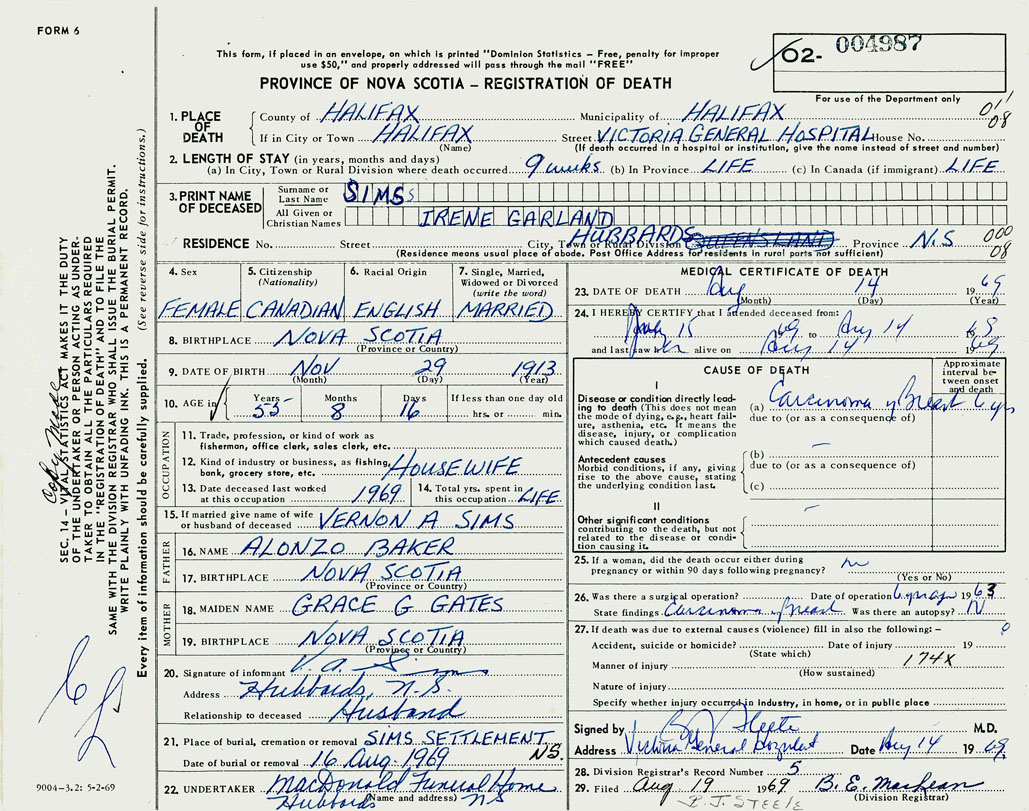 FORM 6
This form, if placed in an envelope, on which is printed "Dominion Statistics – Free, penalty for improper
use $50," and properly addressed will pass through the mail "FREE"
O2- 004987
For use of the Department only
PROVINCE OF NOVA SCOTIA – REGISTRATION OF DEATH
1. PLACE OF DEATH
County of HALIFAX Municipality of HALIFAX 011
If in City or Town HALIFAX Street VICTORIA GENERAL HOSPITAL House No. 08
(Name) (If death occurred in a hospital or institution, give the name instead of street and number)
2. LENGTH OF STAY (in years, months and days)
(a) In City, Town or Rural Division where death occurred 9 weeks (b) In Province LIFE (c) In Canada (if immigrant) LIFE
3. PRINT NAME OF DECEASED
Surname or Last Name SIMS
All Given or Christian Names IRENE GARLAND
HUBBARDS
RESIDENCE No. Street City, Town or Rural Division QUEENSLAND Province N.S 000
(Residence means usual place of abode. Post Office Address for residents in rural parts not sufficient) 08
4. Sex FEMALE
5. Citizenship (Nationality) CANADIAN
6. Racial Origin ENGLISH
7. Single, Married, Widowed or Divorced (write the word) MARRIED
8. BIRTHPLACE NOVA SCOTIA
(Province or Country)
9. DATE OF BIRTH Nov 29 1913
(Month) (Day) (Year)
10. AGE in Years 55 Months 8 Days 16 If less than one day old
hrs. or min.
OCCUPATION
11. Trade, profession, or kind of work as
fisherman, office clerk, sales clerk, etc.
12. Kind of industry or business, as fishing,
bank, grocery store, etc. HOUSEWIFE
13. Date deceased last worked at this occupation 1969
14. Total yrs. spent in this occupation LIFE
15. If married give name of wife
or husband of deceased VERNON A SIMS
FATHER
16. NAME ALONZO BAKER
17. BIRTHPLACE NOVA SCOTIA
(Province or Country)
MOTHER
18. MAIDEN NAME GRACE G GATES
19. BIRTHPLACE NOVA SCOTIA
(Province or Country)
20. Signature of informant V. A. Sims
Address Hubbards, N.S.
Relationship to deceased Husband
21. Place of burial, cremation or removal SIMS SETTLEMENT
Date of burial or removal 16 Aug. 1969 N.S.
22. UNDERTAKER MacDonald Funeral Home
(Name and address)
Hubbards NS
MEDICAL CERTIFICATE OF DEATH
23. DATE OF DEATH Aug 14 1969
(Month) (Day) (Year)
24. I HEREBY CERTIFY that I attended deceased from:
July 15 1969 to Aug 14 1969
and last saw her alive on Aug 14 1969
CAUSE OF DEATH
Approximate
interval be-
tween onset
and death
I
Disease or condition directly lead-
ing to death (This does not mean
the mode of dying, e.g., heart fail-
ure, asthenia, etc. It means the
disease, injury, or complication
which caused death.)
(a) Carcinoma of Breast 6 yrs
due to (or as a consequence of)
Antecedent causes
Morbid conditions, if any, giving
rise to the above cause, stating
the underlying condition last.
(b)
due to (or as a consequence of)
(c)
II
Other significant conditions
contributing to the death, but not
related to the disease or condi-
tion causing it.
25. If a woman, did the death occur either during
pregnancy or within 90 days following pregnancy?
(Yes or No)
26. Was there a surgical operation? Date of operation 1963
State findings Carcinoma of Breast Was there an autopsy? N
27. If death was due to external causes (violence) fill in also the following: –
Accident, suicide or homicide? Date of injury 19
(State which)
Manner of injury 174X
(How sustained)
Nature of injury
Specify whether injury occurred in Industry, in home, or in public place
Signed by M.D.
Address Victoria General Hospital Date Aug 14 1969
28. Division Registrar's Record Number 5
29. Filed Aug 19 1969 B. E. MacLean
(Division Registrar)
B.J. STEELE
SEC. 14 – VITAL STATISTICS ACT MAKES IT THE DUTY
OF THE UNDERTAKER OR PERSON ACTING AS UNDER-
TAKER TO OBTAIN ALL THE PARTICULARS REQUIRED
IN THE "REGISTRATION OF DEATH" AND TO FILE THE
SAME WITH THE DIVISION REGISTRAR WHO SHALL ISSUE THE BURIAL PERMIT.
WRITE PLAINLY WITH UNFADING INK. THIS IS A PERMANENT RECORD.
Every item of information should be carefully supplied. (See reverse side for instructions.)
9004-3.2: 5-2-69